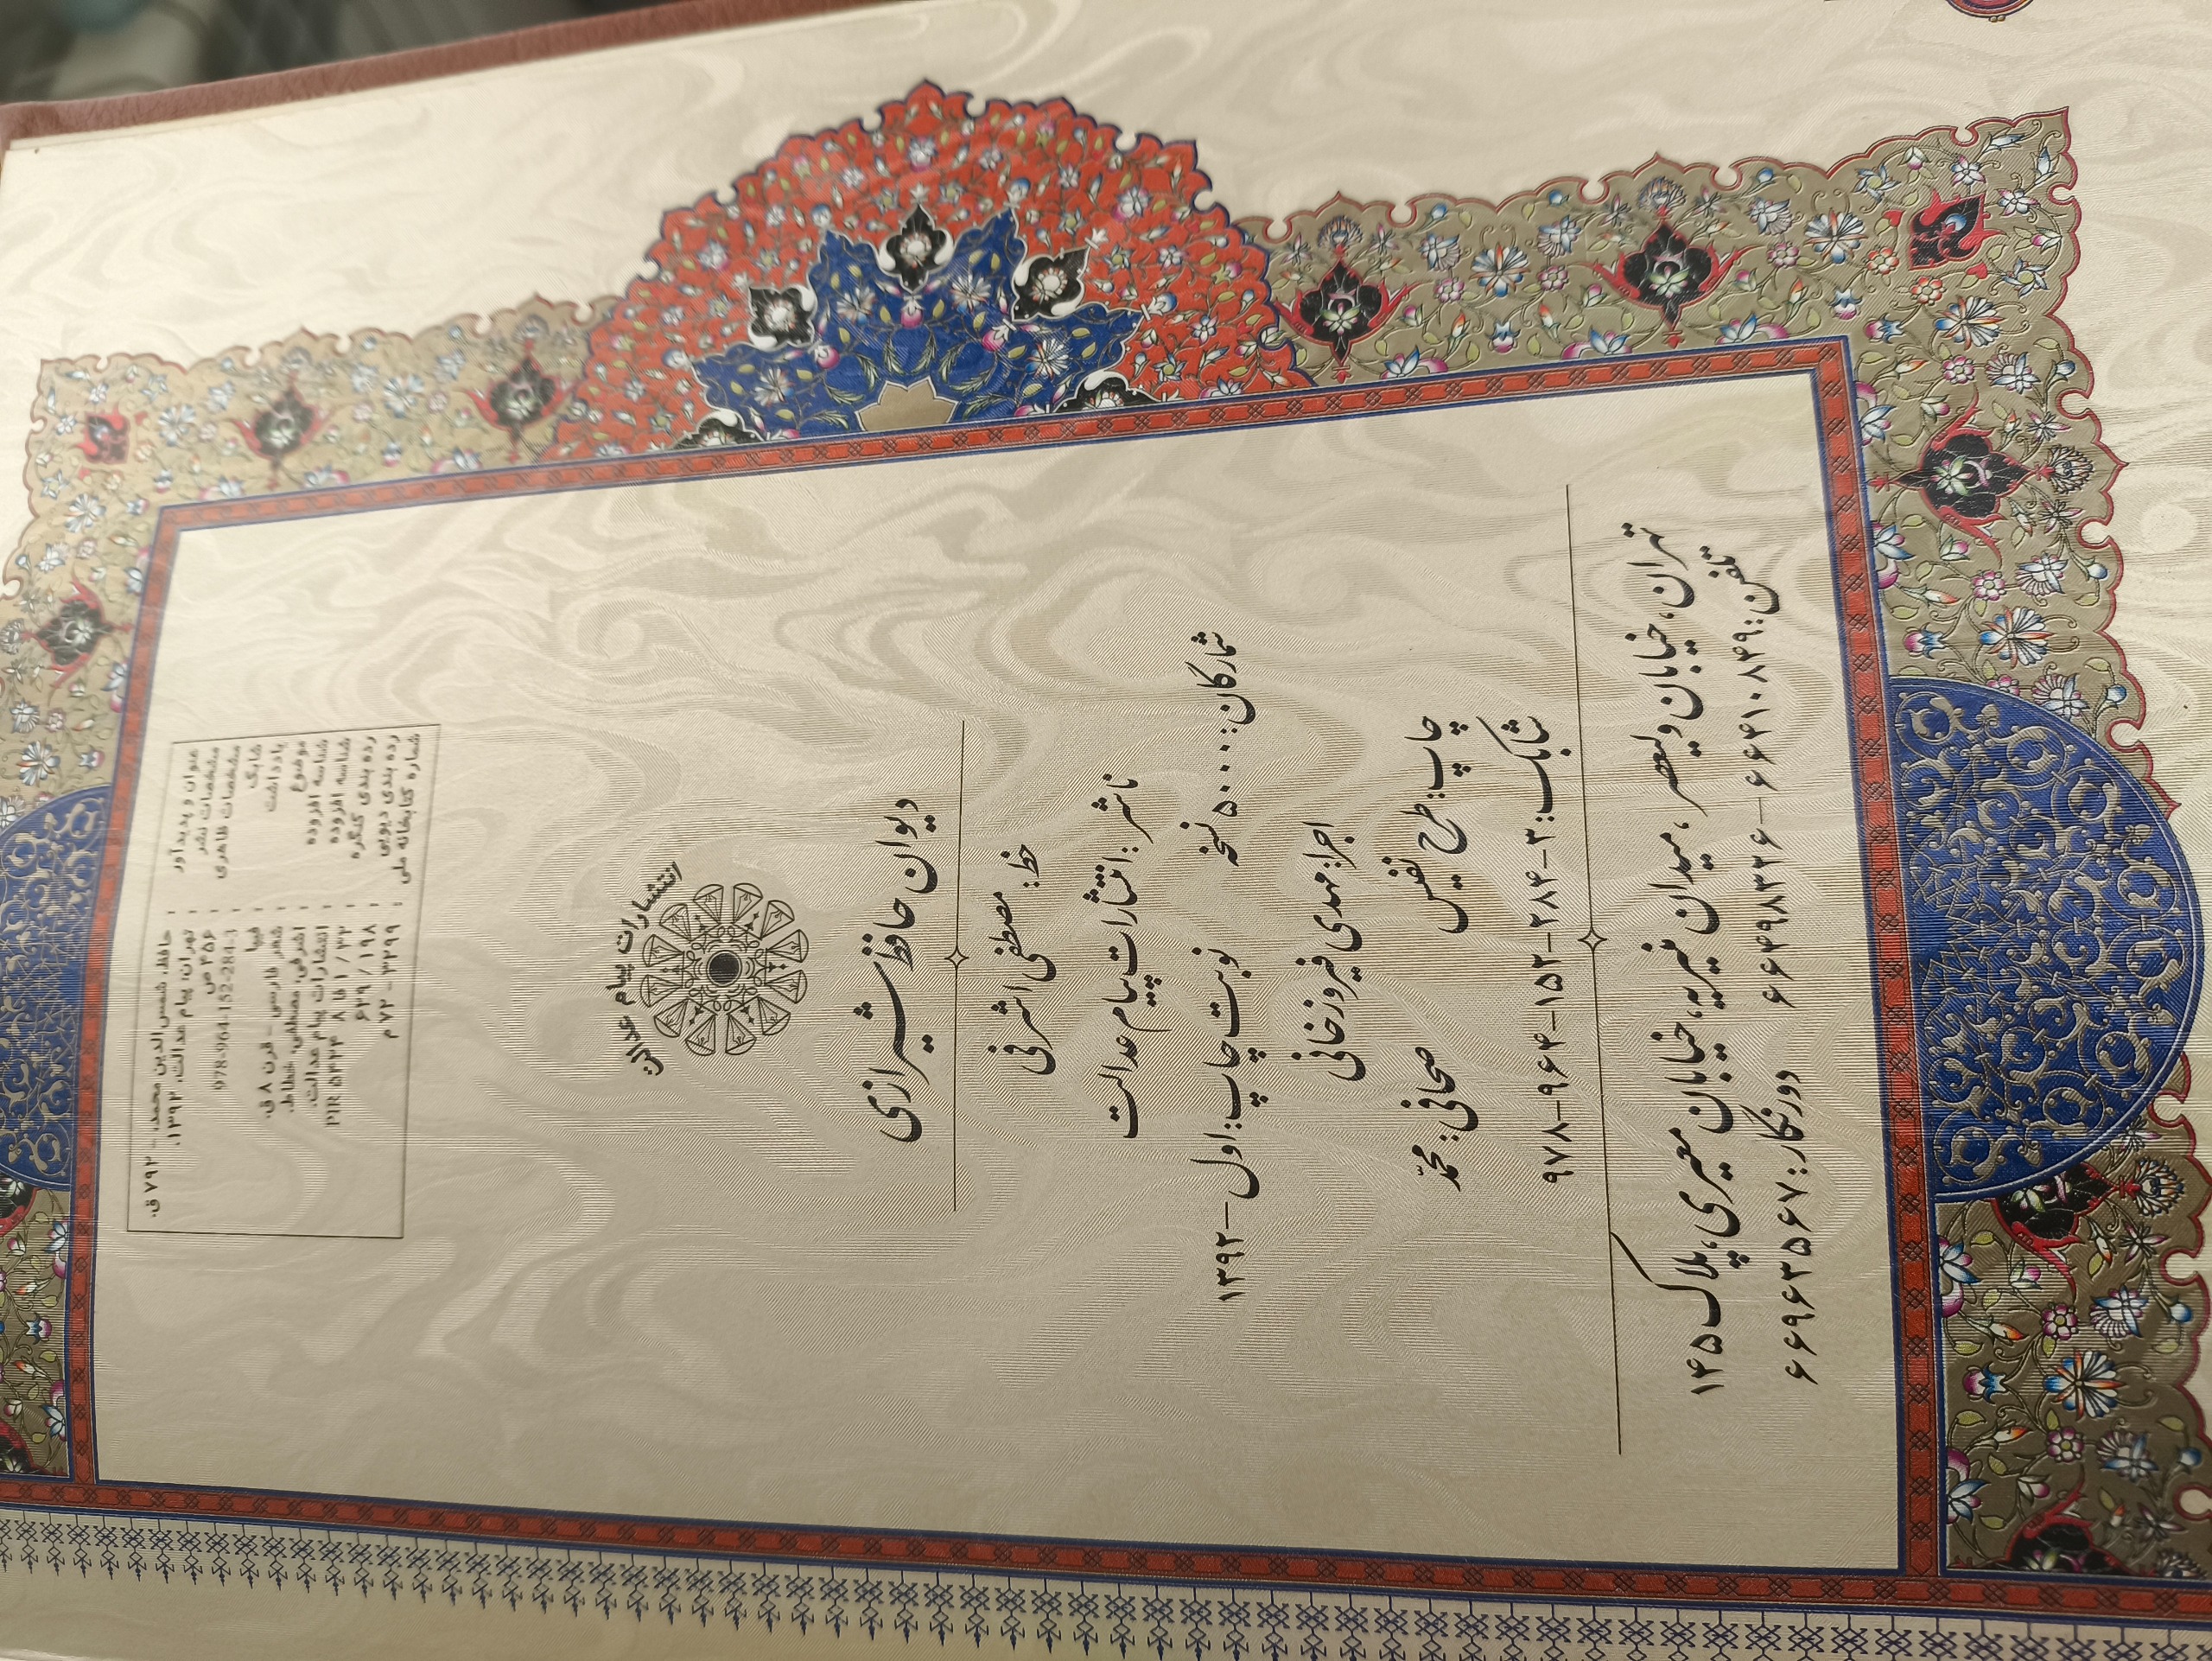 عنوان و پدیدآور : حافظ، شمس‌الدین محمد، - ۷۹۲ ق.
مشخصات نشر : تهران، پیام عدالت، ۱۳۹۲.
مشخصات ظاهری : ۴۵۶ ص
شابک : 978-964-152-284-3
یادداشت : فیپا
موضوع : شعر فارسی - قرن ۸ ق.
شناسه افزوده : اشرفی، مصطفی، خطاط.
شناسه افزوده : انتشارات پیام عدالت.
رده بندی کنگره :
رده بندی دیویی :
شماره کتابخانه ملی : م ۷۲ - ۳۲۹۹
انتشارات پیام عدالت
دیوان حافظ شیرازی
خط: مصطفی اشرفی
ناشر: انتشارات پیام عدالت
شمارگان: ۵۰۰۰ نسخه نوبت چاپ: اول - ۱۳۹۲
اجرا: مهدی فیروزخانی
چاپ: طرح نفیس صحافی: محمد
شابک: ۳-۲۸۴-۱۵۲-۹۶۴-۹۷۸
تهران، خیابان ولیعصر، میدان منیریه، خیابان معیری، پلاک ۱۴۵
تلفن: ۶۶۴۱۰۸۴۹ - ۶۶۴۹۸۳۲۶ دورنگار: ۶۶۹۶۳۵۶۷